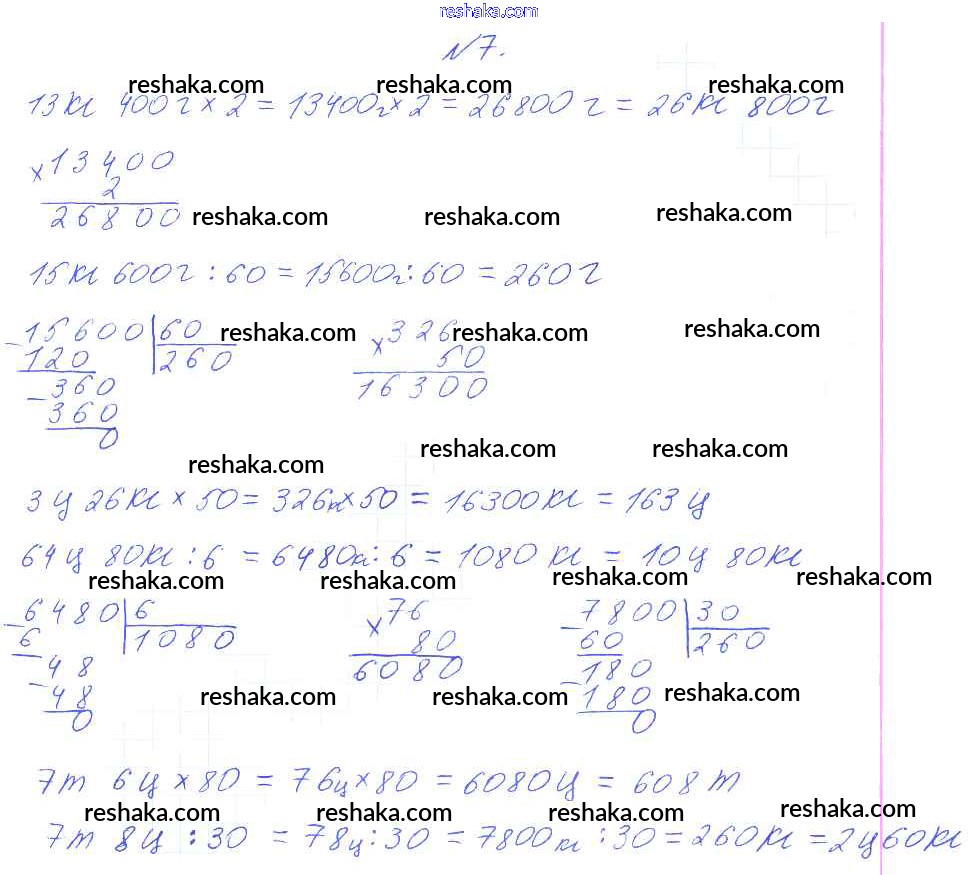 reshaka.com
№7.
reshaka.com reshaka.com reshaka.com
13 кг 400 г × 2 = 13400г × 2 = 26800 г = 26 кг 800 г
× 13400
2
26800
reshaka.com reshaka.com reshaka.com
15 кг 600 г : 60 = 15600г : 60 = 260 г
- 15600 | 60
120 | 260
- 360
360
0
× 326
50
16300
reshaka.com reshaka.com reshaka.com
reshaka.com reshaka.com reshaka.com
3 ц 26 кг × 50 = 326кг × 50 = 16300 кг = 163 ц
64 ц 80 кг : 6 = 6480кг : 6 = 1080 кг = 10 ц 80 кг
reshaka.com reshaka.com reshaka.com
- 6480 | 6
6 | 1080
- 48
48
0
× 76
80
6080
- 7800 | 30
60 | 260
- 180
180
0
reshaka.com reshaka.com reshaka.com
7 т 6 ц × 80 = 76ц × 80 = 6080 ц = 608 т
reshaka.com reshaka.com reshaka.com reshaka.com
7 т 8 ц : 30 = 78ц : 30 = 7800кг : 30 = 260 кг = 2 ц 60 кг